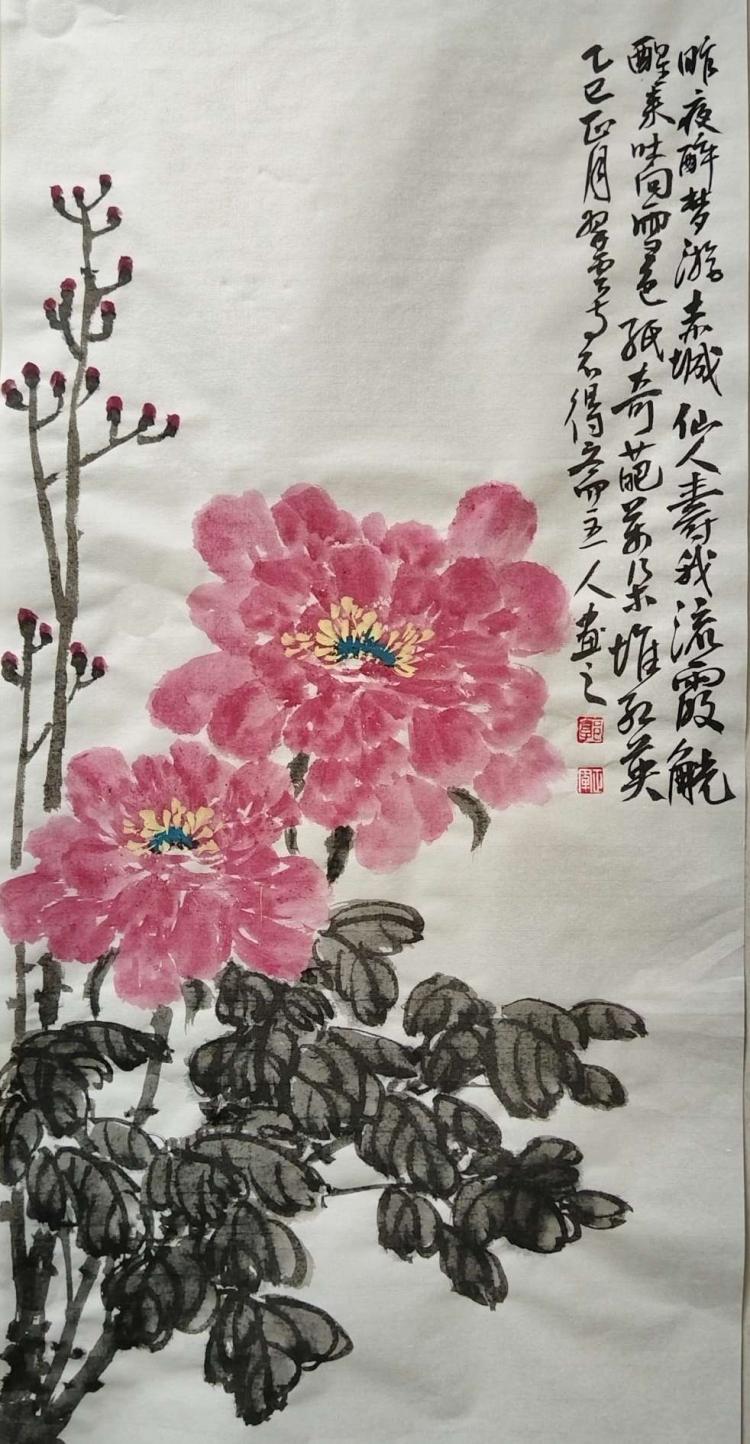 昨夜醉梦游赤城仙人寿我流霞觥
醒来吐向雪色紙奇葩万朵堆红英
乙巳正月翠云 不得 斋主人画之